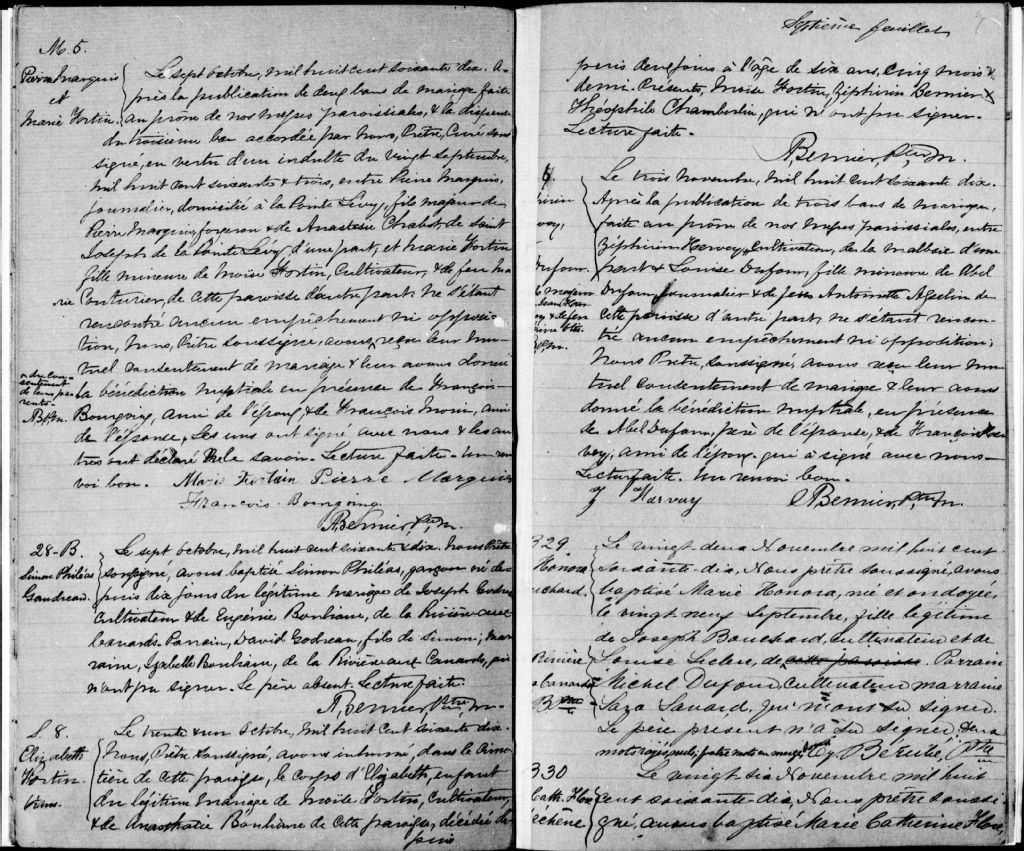 M. 5.
Pierre Marquis
et
Marie Fortin.
Le sept octobre, mil huit cent soixante dix. A-
près la publication de deux bans de mariage faite
au prône de nos messes paroissiales, & la dispense
du troisième ban accordée par nous, Prêtre, Curé sous-
signé, en vertu d'un indulte du vingt septembre,
mil huit cent soixante & trois, entre Pierre Marquis,
journalier, domicilié à la Pointe Lévy, fils majeur de
Pierre Marquis forgeron & de Anastasie Chabot de Saint
Joseph de la Pointe Lévy d'une part, et Marie Fortin
fille mineure de Moïse Fortin, Cultivateur, & de feu Ma-
rie Couturier, de cette paroisse d'autre part; ne s'étant
rencontré aucun empêchement ni opposi-
tion, Nous, Prêtre soussigné, avons reçu leur mu-
tuel consentement de mariage & leur avons donné
x du con-
sentement
de leurs pa-
rents
ABptrm.
la bénédiction nuptiale en présence de François
Bourgoing, ami de l'époux & de François Morin, ami
de l'épouse, Les uns ont signé avec nous & les au-
tres ont déclaré ne le savoir. Lecture faite. Un ren-
voi bon. Marie Fortain Pierre Marquis
François Bourgoing
A, Bernier, Ptre, m.
28-B.
Simon Philéas
Gaudreau.
Le sept octobre, mil huit cent soixante & dix. Nous Prêtre
soussigné, avons baptisé Simon Philéas, garçon né de-
puis dix jours du légitime mariage de Joseph Godreau
Cultivateur & de Eugénie Bonhiane, de la Rivière aux
Canards. Parrain, David Godreau, fils de Simon; mar-
raine, Izabelle Bonhiane, de la Rivière aux Canards, qui
n'ont pu signer. Le père absent. Lecture faite.
A, Bernier, Ptre, m.
S. 8.
Elizabeth
Fortin.
Le trente & un octobre, mil huit cent soixante dix.
Nous, Prêtre soussigné, avons inhumé, dans le cime-
tière de cette paroisse, le corps d'Elizabeth, enfant
du légitime mariage de Moïse Fortin, cultivateur,
& de Anasthasie Bonhiane de cette paroisse, décédée de-
puis
Septième feuillet
7
puis deux jours à l'âge de six ans, cinq mois &
demi. Présents, Moïse Fortin, Zéphirin Bernier &
Théophile Chamberlin, qui n'ont pu signer.
Lecture faite.
A, Bernier, Ptre, m.
Le trois novembre, mil huit cent soixante dix.
Après la publication de trois bans de mariage,
faite au prône de nos messes paroissiales, entre
Zéphirin Hervey, Cultivateur, de la Malbaie d'une
part & Louise Dufour, fille mineure de Abel
Dufour, journalier & de feue Antoinette Asselin de
cette paroisse d'autre part; ne s'étant rencon-
tré aucun empêchement ni opposition;
Nous Prêtre, soussigné, avons reçu leur mu-
tuel consentement de mariage & leur avons
donné la bénédiction nuptiale, en présence
de Abel Dufour, père de l'épouse, & de François Har-
vey, ami de l'époux qui a signé avec nous.
Lecture faite. Un renvoi bon.
f Harvay A, Bernier, Ptre, m.
B 29
Honora
uchard.
Le vingt-deux Novembre mil huit cent
soixante-dix, Nous prêtre soussigné, avons
baptisé Marie Honora, née et ondoyée,
le vingt neuf Septembre, fille légitime
de Joseph Bouchard, Cultivateur et de
Louise Leclerc, de cette paroisse. Parrain
Michel Dufour, Cultivateur marraine
Sara Savard, qui n'ont su signer
Le père présent n'a su signer, deux
mots rayés nuls, quatre mots en marge bons
Rivière
x Canards
Ls. Z. Bérubé, Ptre
m
B 30
Cath. Flore
echêne
Le vingt six Novembre mil huit
cent soixante-dix, Nous prêtre soussi-
gné, avons baptisé Marie Catherine Flore,